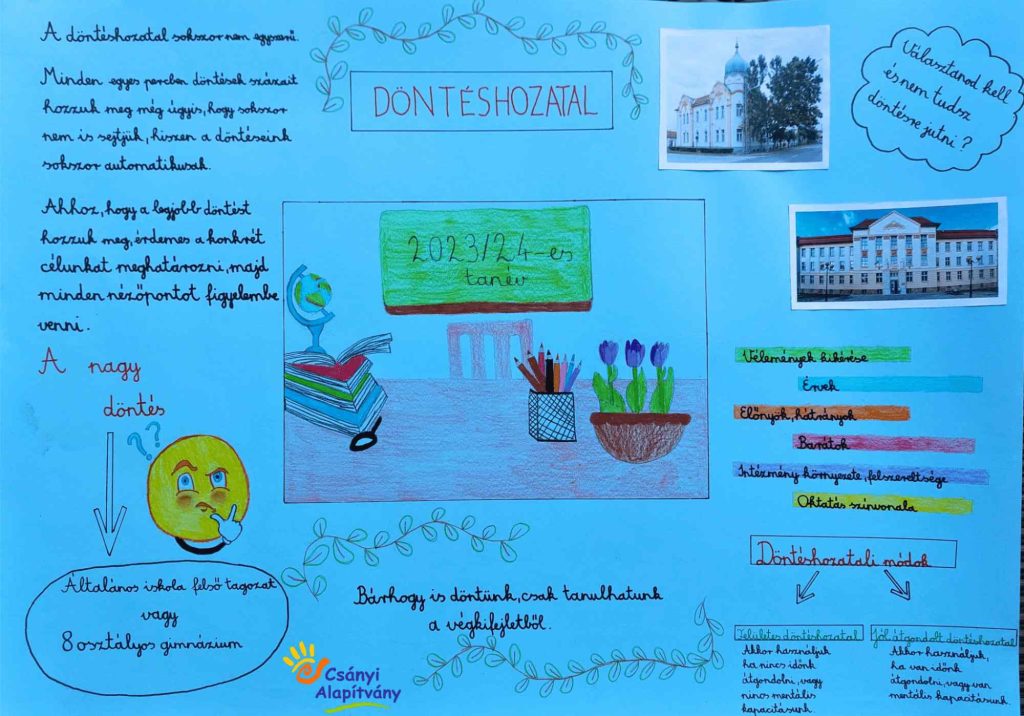 A döntéshozatal sokszor nem egyszerű.
Minden egyes percben döntések százait
hozzuk meg még úgyis, hogy sokszor
nem is sejtjük, hiszen a döntéseink
sokszor automatikusak.
Ahhoz, hogy a legjobb döntést
hozzuk meg, érdemes a konkrét
célunkat meghatározni, majd
minden nézőpontot figyelembe
venni.
A nagy
döntés
??
Általános iskola felső tagozat
vagy
8 osztályos gimnázium
DÖNTÉSHOZATAL
2023/24-es
tanév
Bárhogy is döntünk, csak tanulhatunk
a végkifejletből.
Csányi
Alapítvány
Választanod kell
és nem tudsz
döntésre jutni?
Vélemények kikérése
Érvek
Előnyök, hátrányok
Barátok
Intézmény környezete, felszereltsége
Oktatás színvonala
Döntéshozatali módok
Felületes döntéshozatal
Akkor használjuk
ha nincs időnk
átgondolni, vagy
nincs mentális
kapacitásunk.
Jól átgondolt döntéshozatal
Akkor használjuk,
ha van időnk
átgondolni, vagy van
mentális kapacitásunk.